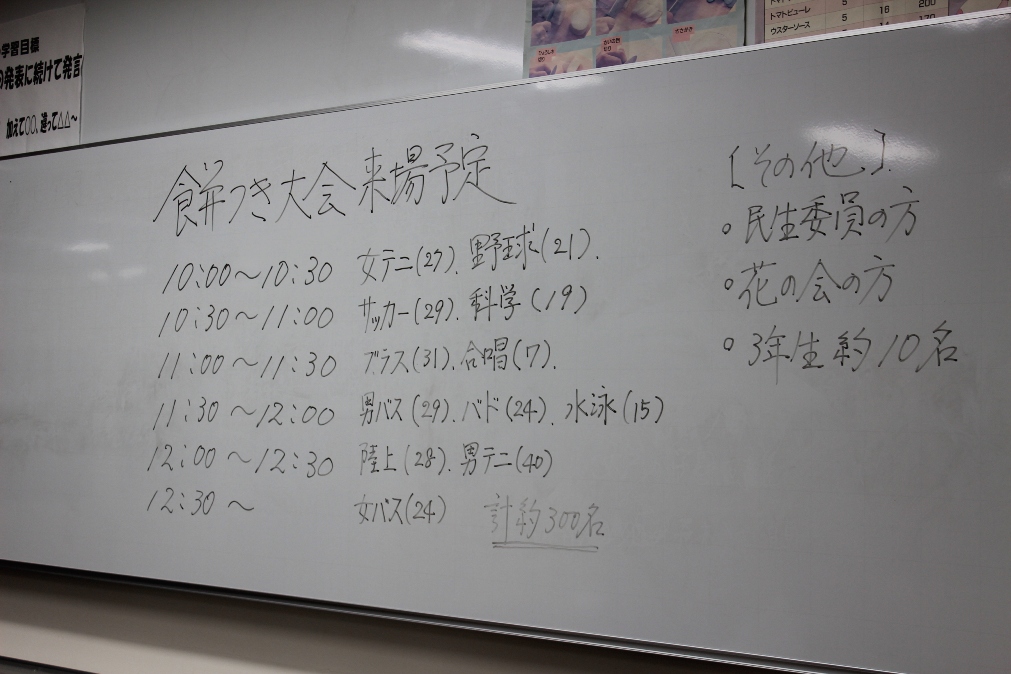 学習目標
の発表に続けて発言
加えて○○、違って△△~
ひょうしぎ切り
さいの目切り
ささがき
トマトピューレ 5 16
ウスターソース 5 16
200
170
餅つき大会来場予定
10:00~10:30 女テニ(27). 野球(21).
10:30~11:00 サッカー(29). 科学(19)
11:00~11:30 ブラス(31). 合唱(7).
11:30~12:00 男バス(29). バド(24). 水泳(15)
12:00~12:30 陸上(28). 男テニ(40)
12:30~ 女バス(24)
計約300名
[その他.].
○民生委員の方
○花の会の方
○3年生約10名